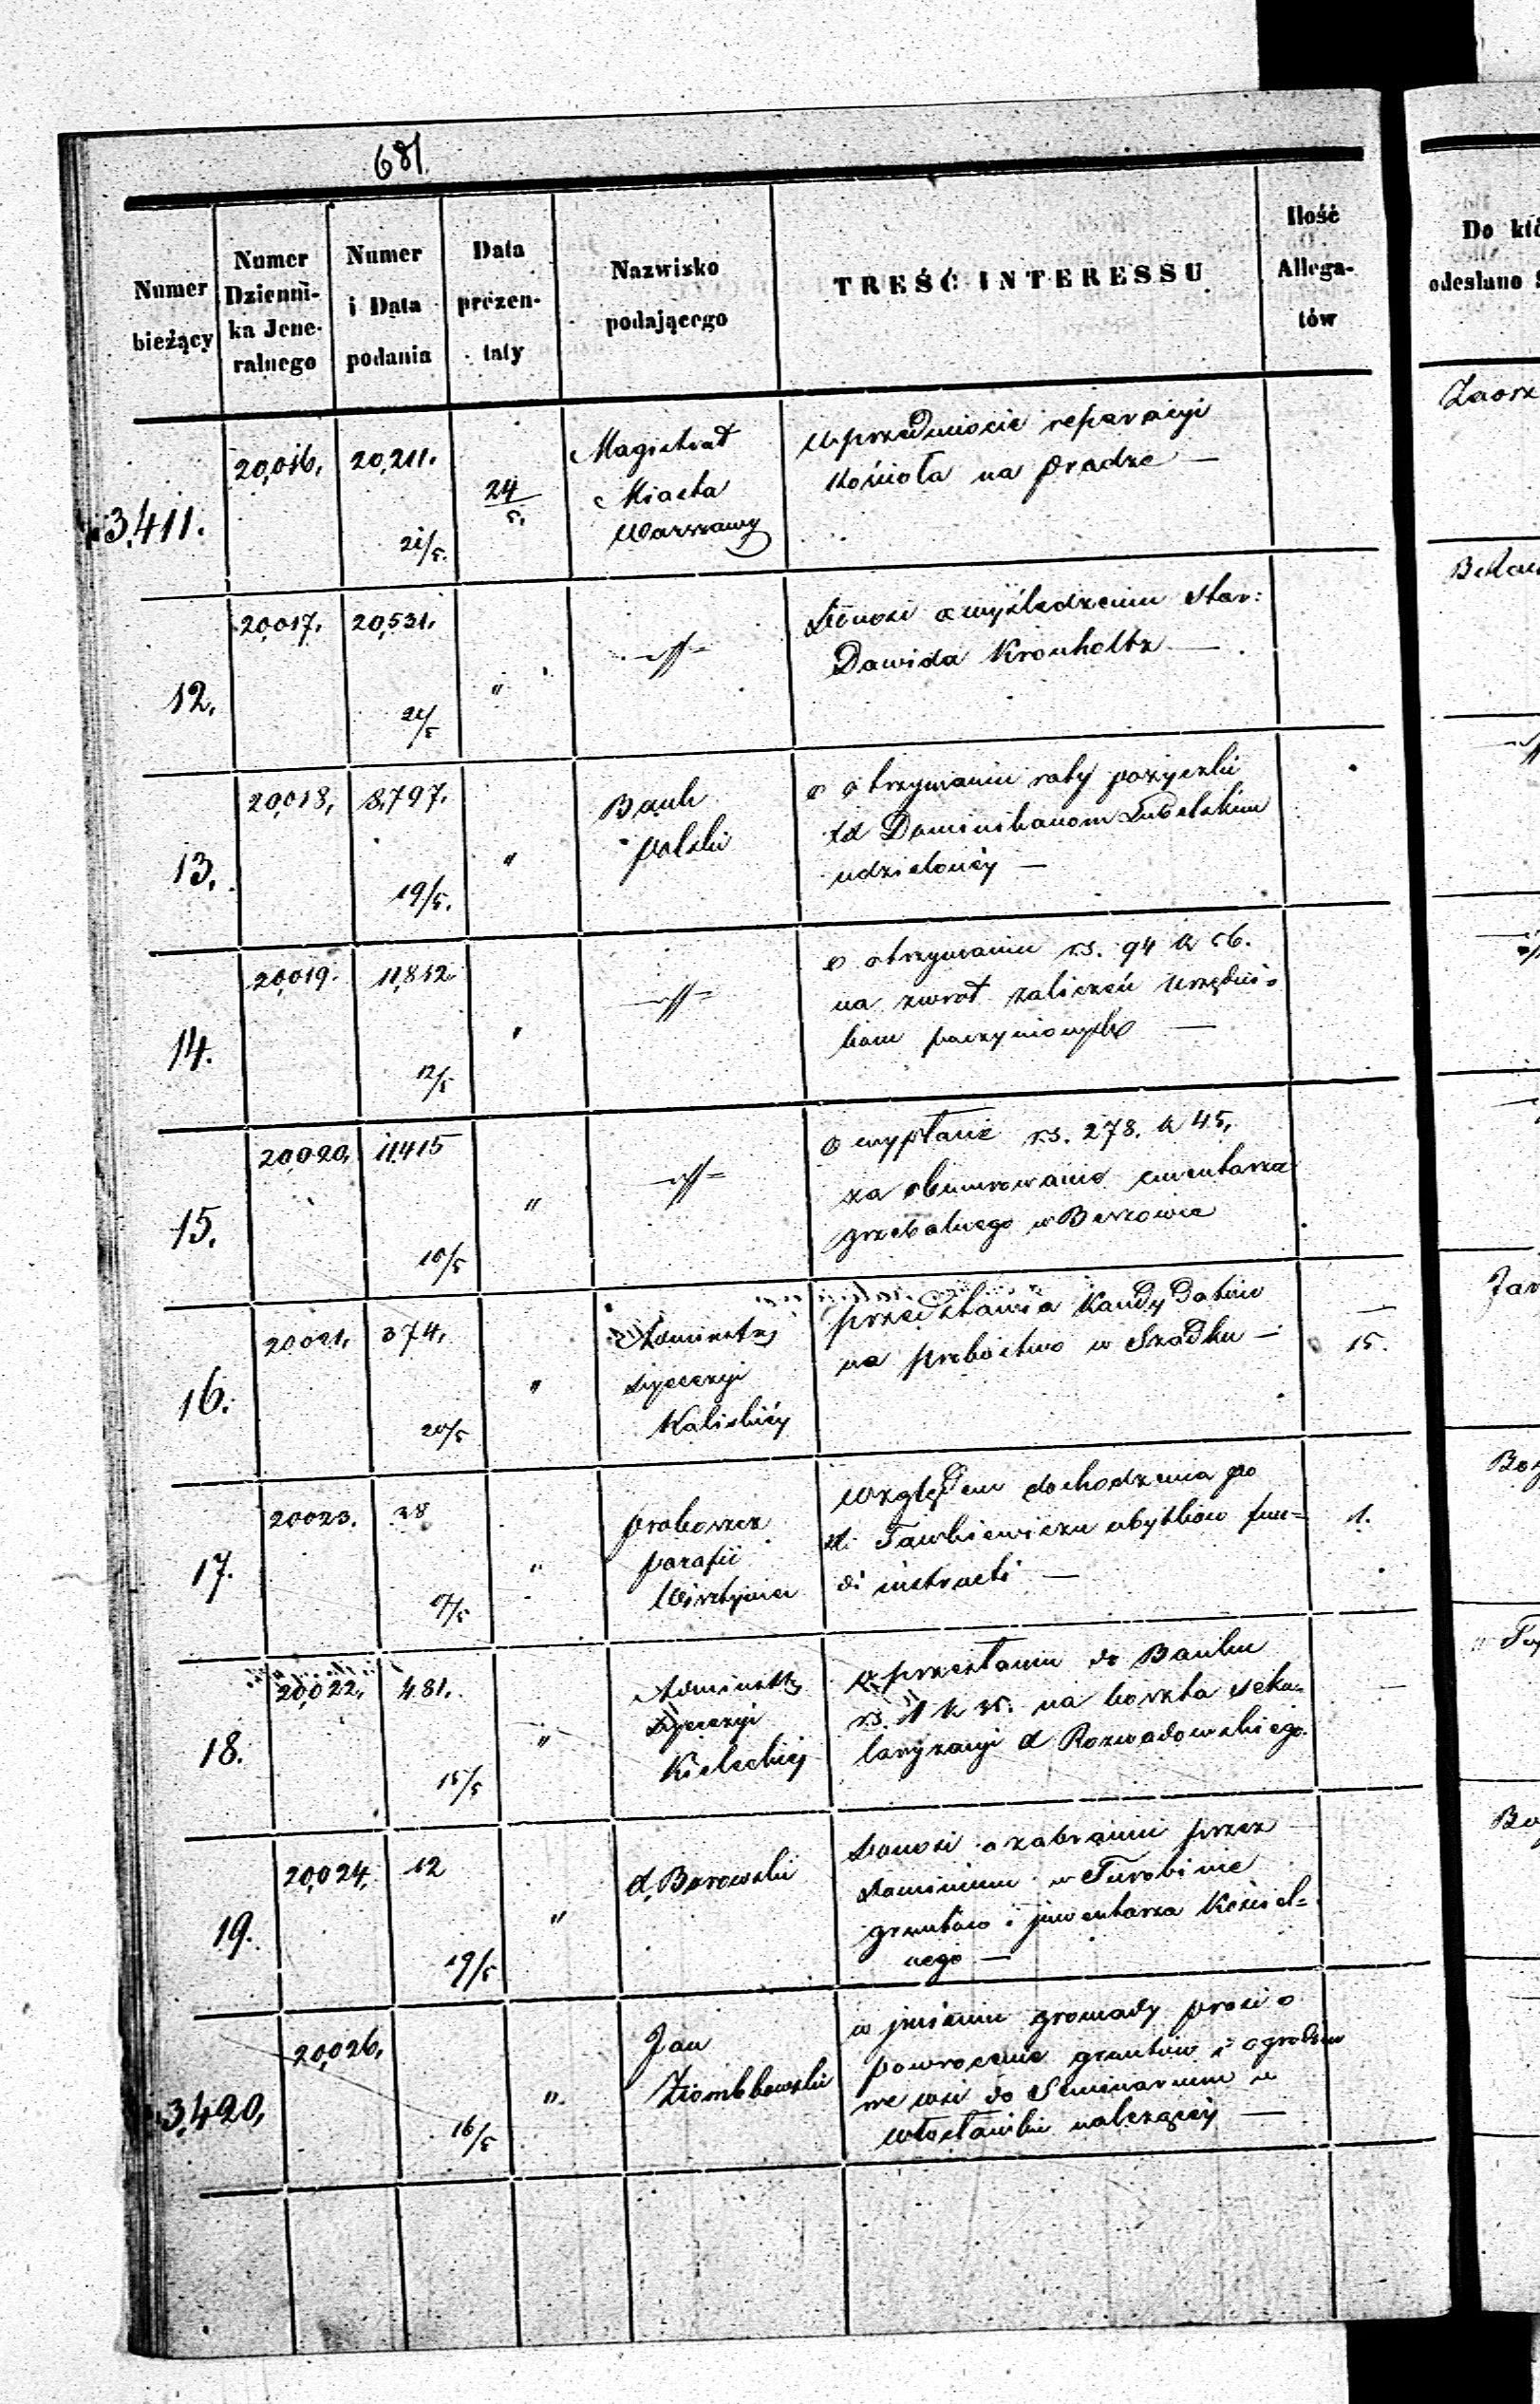 681.
Numer bieżący
Numer Dzienni-ka Jene-ralnego
Numer i Data podania
Data prezen-taty
Nazwisko podającego
TREŚĆ INTERESSU
Ilość Allega-tów
Do któ
odesłano
3,411.
20,016.
20,211.
21/5.
24/5.
Magistrat
Miasta
Warszawy
w przedmiocie reparacyi
Kościoła na Pradze —
Zaorz
12.
20,017.
20,531.
21/5
"
Donosi o wyśledzeniu star:
Dawida Kronholtz — .
13.
20,018.
8,797.
19/5.
"
Bank
polski
o otrzymaniu raty pożyczki
Dominikanom Lubelskim
udzielonéj —
14.
20,019.
11,812.
12/5
"
o otrzymaniu rs. 94 k 56.
na zwrot zaliczeń Urzędni-
kom poczynionych —
15.
20,020.
11,415
10/5
"
o wypłacie rs. 278. k 45.
za obmurowanie cmentarza
grzebalnego w
16.
20021.
374.
20/5
"
Administr
Dyecezyi
Kaliskiéj
przedstawia Kandydatów
na probostwo w Szadku —
15.
Jar
17.
20023.
38
17/5
"
proboszcz
parafii
względem dochodzenia po
X. ubytków fun-
di instructi —
1.
18.
20,022.
481.
15/5
"
Administr
Dyecezyi
Kieleckiéj
o przesłaniu do Banku
rs. na koszta seku-
laryzacyi X Rozwadowskiego.
19.
20,024.
12
19/5
"
X. Borowski
Donosi o zabraniu przez
Dominium w Turobinie
gruntów i inwentarza Kościel-
nego —
3,420.
20,026.
16/5
"
Jan
w imieniu gromady prosi o
powrócenie gruntów i ogrodów
we wsi do Seminarium w
Włocławku należącéj —